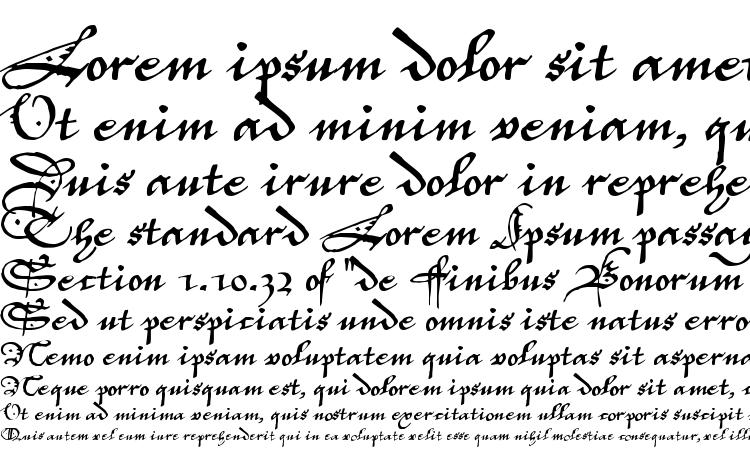 Lorem ipsum dolor sit amet
Ut enim ad minim veniam, qu
Duis aute irure dolor in reprehe
The standard Lorem Ipsum passag
Section 1.10.32 of "de Finibus Bonorum
Sed ut perspiciatis unde omnis iste natus erro
Nemo enim ipsam voluptatem quia voluptas sit asperna
Neque porro quisquam est, qui dolorem ipsum quia dolor sit amet,
Ut enim ad minima veniam, quis nostrum exercitationem ullam corporis suscipit
Duis autem vel eum iure reprehenderit qui in ea voluptate velit esse quam nihil molestiae consequatur, vel ill